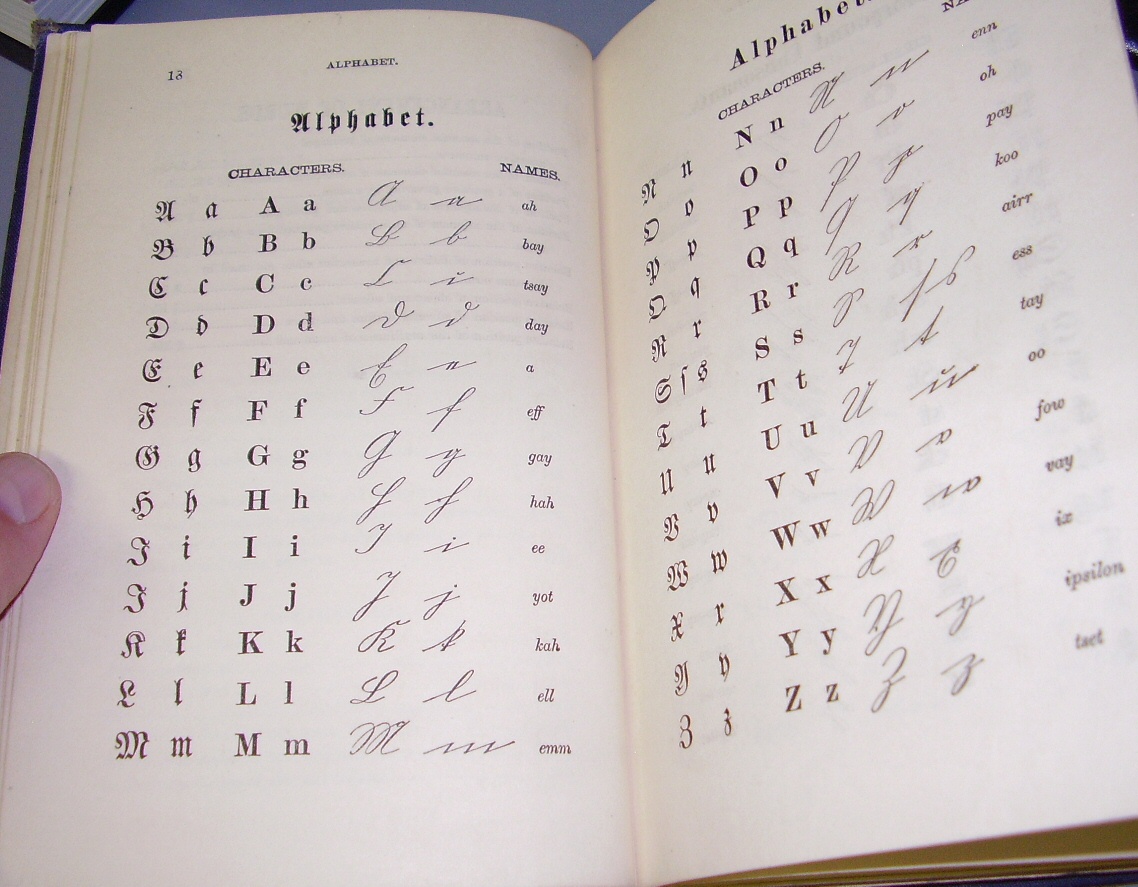 18 ALPHABET.
Alphabet.
CHARACTERS. NAMES.
A a A a A a ah
B b B b B b bay
C c C c C c tsay
D d D d D d day
E e E e E e a
F f F f F f eff
G g G g G g gay
H h H h H h hah
I i I i I i ee
J j J j J j yot
K k K k K k kah
L l L l L l ell
M m M m M m emm
Alphabet.
CHARACTERS. NA
N n N n N n enn
O o O o O o oh
P p P p P p pay
Q q Q q Q q koo
R r R r R r airr
S ſ s S s S ſ s ess
T t T t T t tay
U u U u U u oo
V v V v V v fow
W w W w W w vay
X x X x X x ix
Y y Y y Y y ipsilon
Z z Z z Z z tset